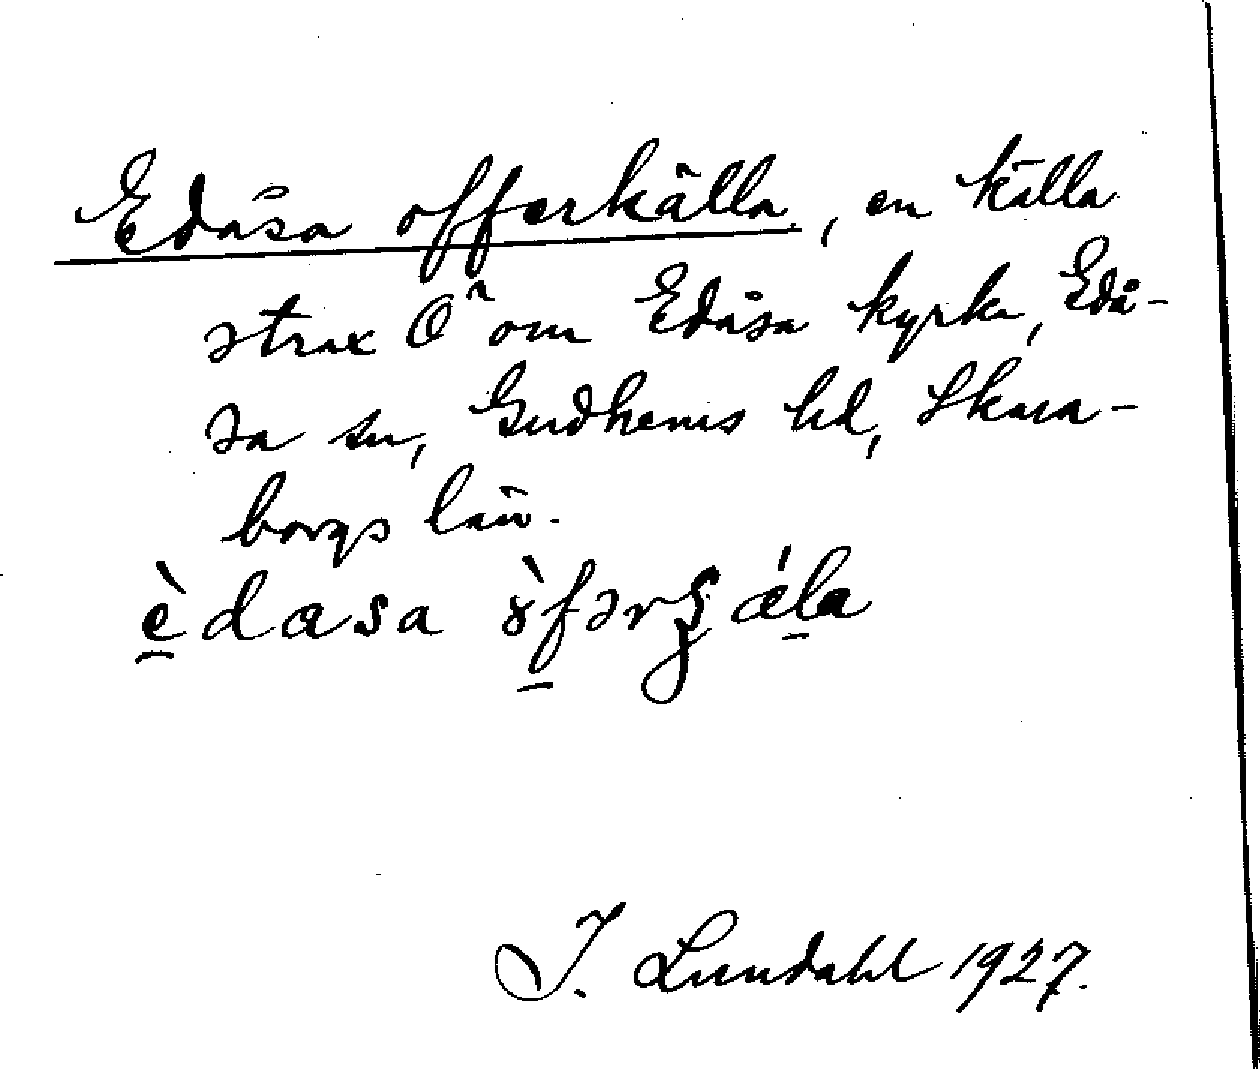 Edåsa offerkälla, en källa
strax Ö om Edåsa kyrka, Edå-
sa sn, Gudhems hd, Skara-
borgs län.
è̱dasa ɤ̀fərʂǽla
I. Lundahl 1927.